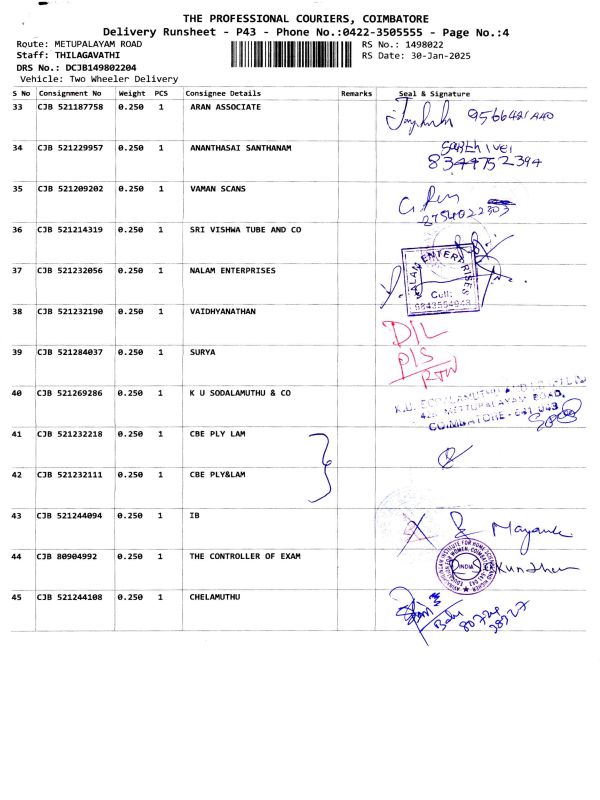 THE PROFESSIONAL COURIERS, COIMBATORE
Delivery Runsheet - P43 - Phone No.:0422-3505555 - Page No.:4
Route: METUPALAYAM ROAD RS No.: 1498022
Staff: THILAGAVATHI RS Date: 30-Jan-2025
DRS No.: DCJB149802204
Vehicle: Two Wheeler Delivery
S No Consignment No Weight PCS Consignee Details Remarks Seal & Signature
33 CJB 521187758 0.250 1 ARAN ASSOCIATE
34 CJB 521229957 0.250 1 ANANTHASAI SANTHANAM
8344752394
35 CJB 521209202 0.250 1 VAMAN SCANS
36 CJB 521214319 0.250 1 SRI VISHWA TUBE AND CO
37 CJB 521232056 0.250 1 NALAM ENTERPRISES
NALAM ENTERPRISES
Cell:
38 CJB 521232190 0.250 1 VAIDHYANATHAN
D/L
P/S
39 CJB 521284037 0.250 1 SURYA
40 CJB 521269286 0.250 1 K U SODALAMUTHU & CO
METTUPALAYAM ROAD,
COIMBATORE - 641 043
41 CJB 521232218 0.250 1 CBE PLY LAM
42 CJB 521232111 0.250 1 CBE PLY&LAM
43 CJB 521244094 0.250 1 IB
44 CJB 80904992 0.250 1 THE CONTROLLER OF EXAM
45 CJB 521244108 0.250 1 CHELAMUTHU